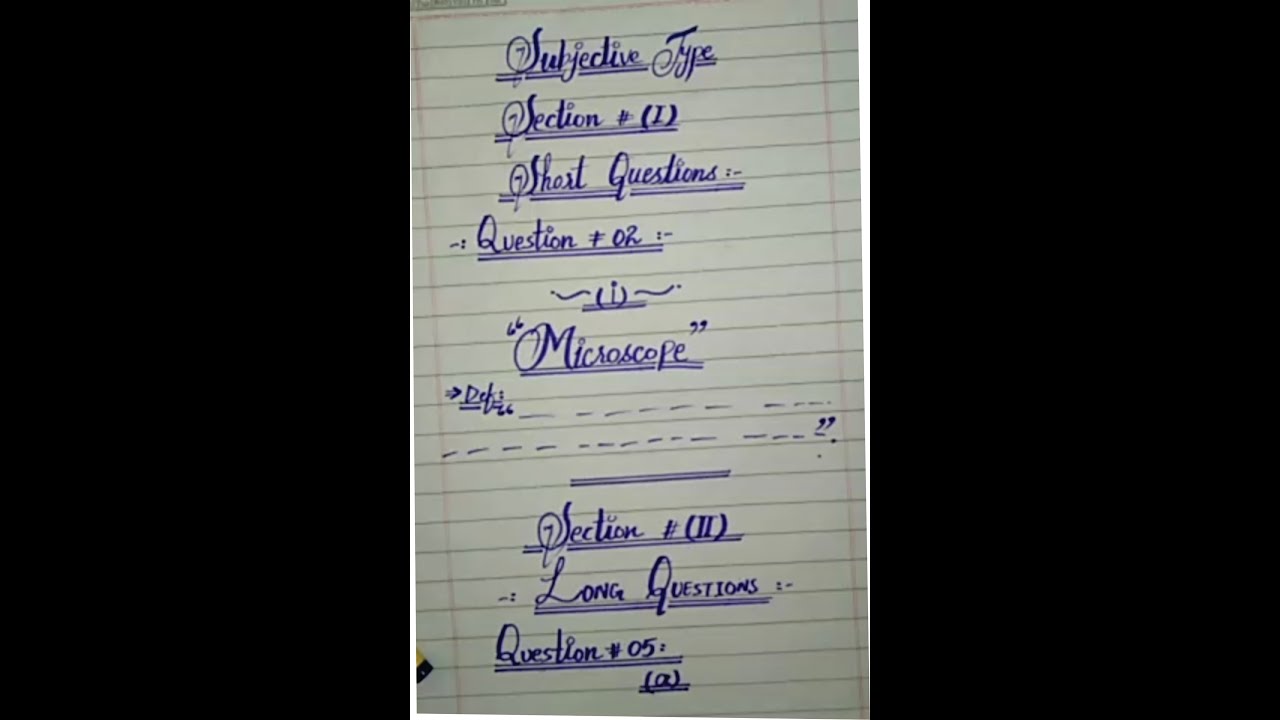 Subjective Type
Section # (I)
Short Questions :-
-: Question # 02 :-
(i)
“Microscope”
⇒ Def: “__ _ _ _ _ _ _ _
_ _ _ _ _ _ _ _ _ _ _”.
Section # (II)
-: LONG QUESTIONS :-
Question # 05:
(a)